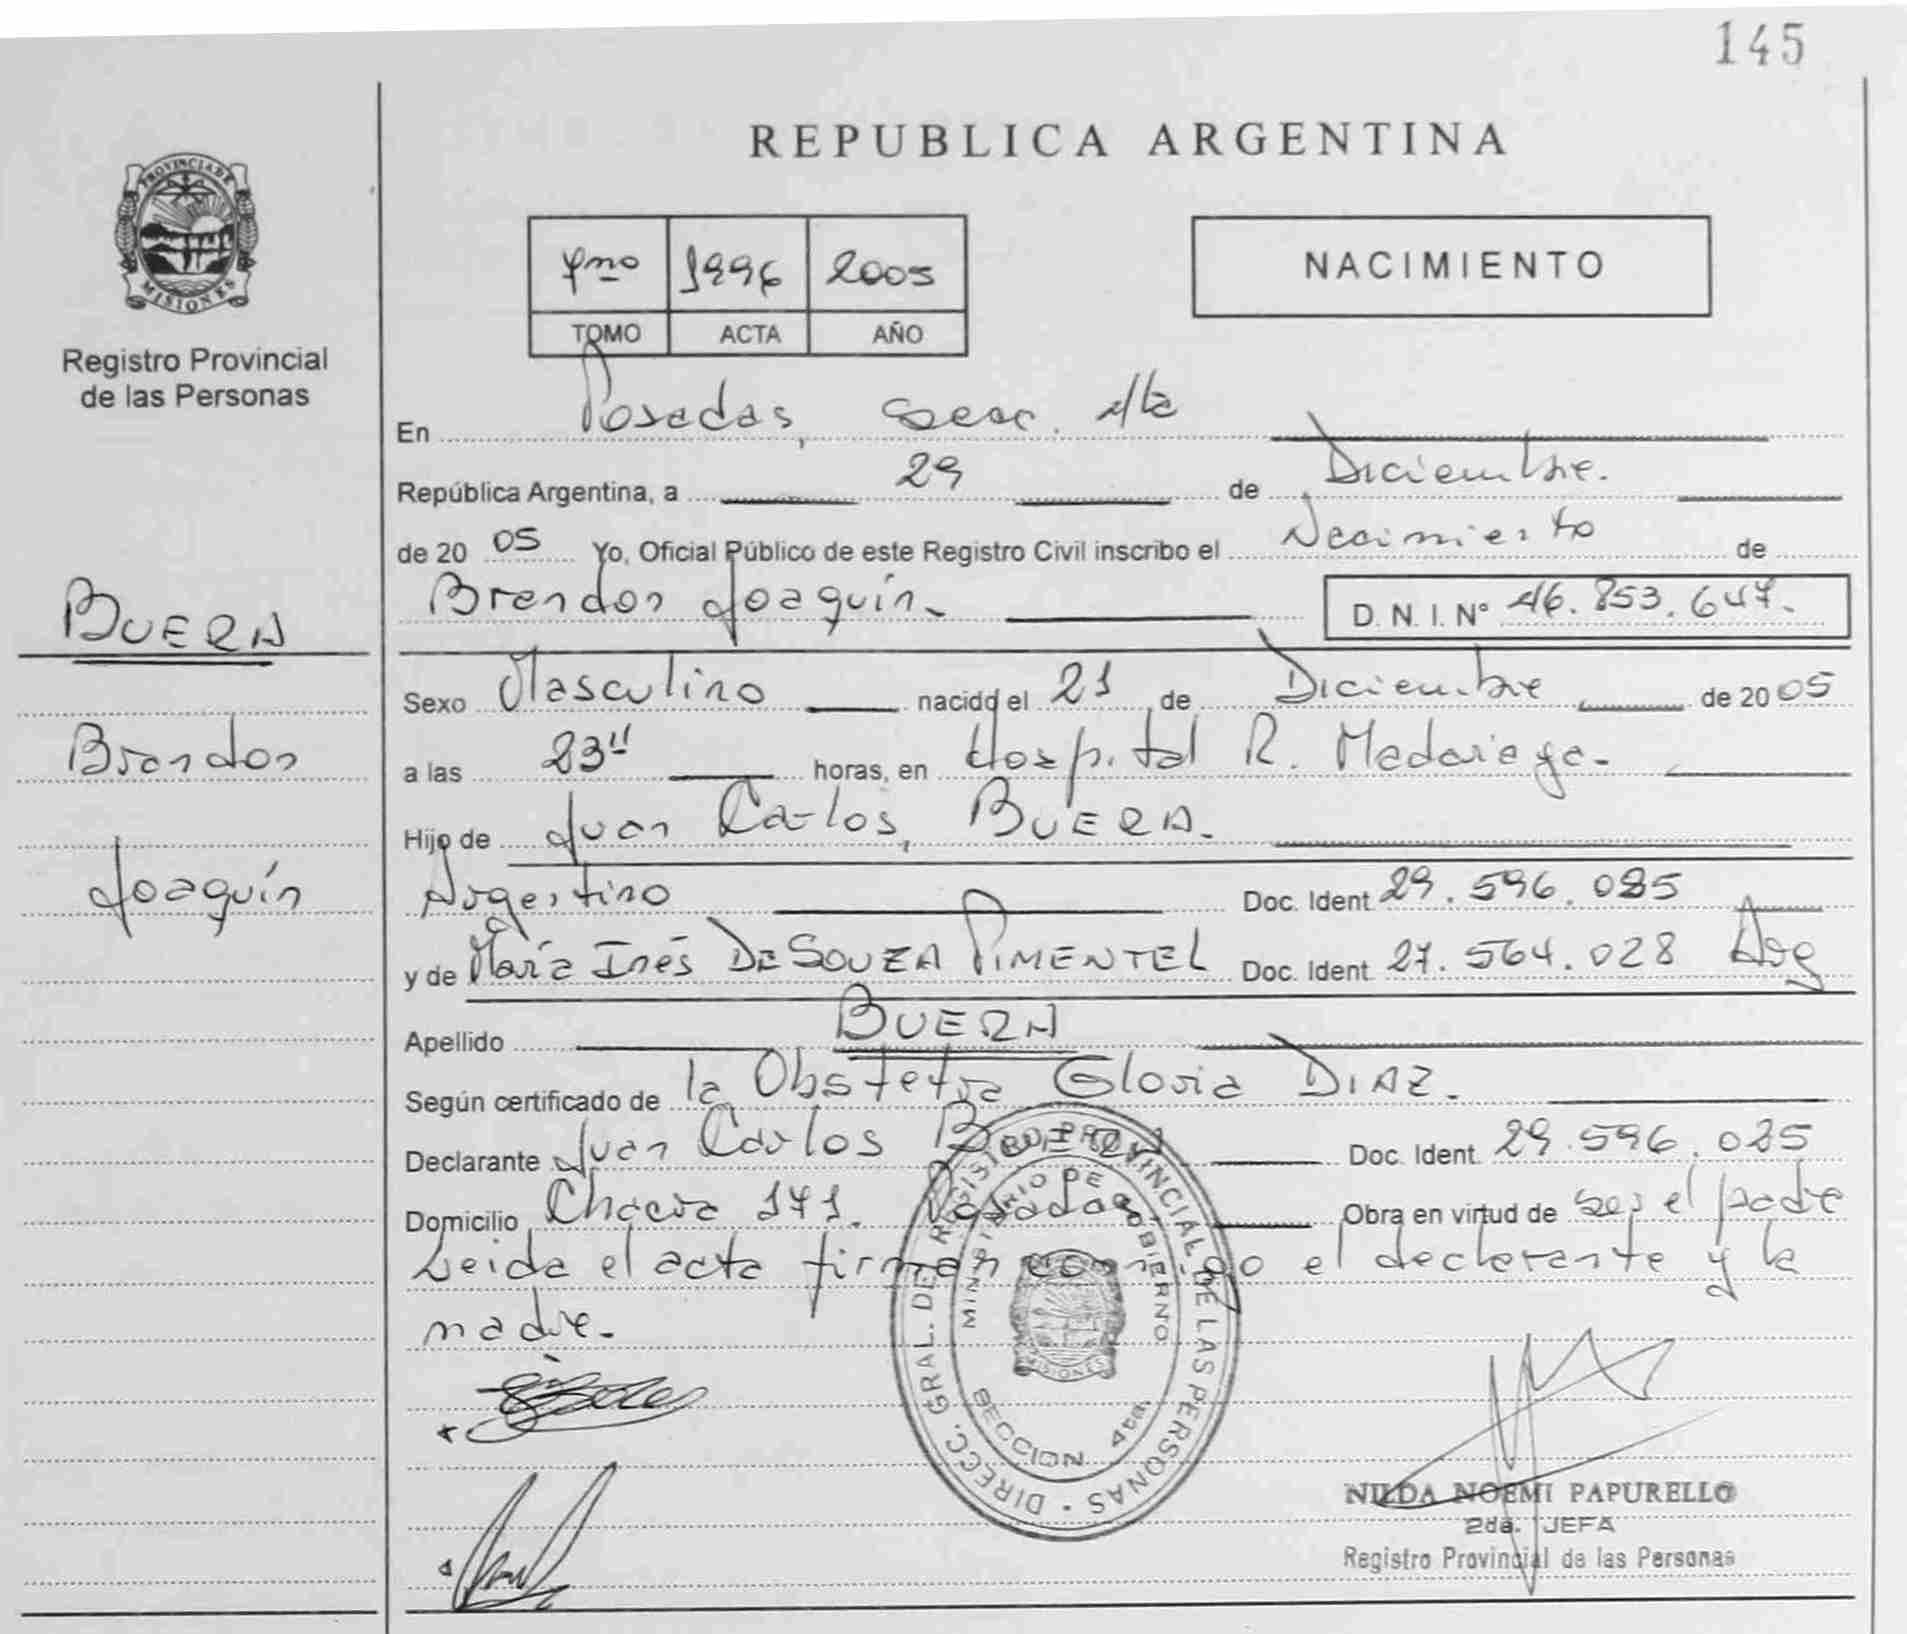 145
REPUBLICA ARGENTINA
PROVINCIA DE
MISIONES
Registro Provincial
de las Personas
4mo 1996 2005
TOMO ACTA AÑO
NACIMIENTO
En Posadas, Secc. 4ta
República Argentina, a 29 de Diciembre.
de 20 05 Yo, Oficial Público de este Registro Civil inscribo el Nacimiento de
Brandon Joaquín. D. N. I. N° 46.853.647.
BUERA
Sexo Masculino nacido el 21 de Diciembre de 20 05
Brandon
a las 23 horas, en Hospital R. Madariaga.
Hijo de Juan Carlos, BUERA.
Joaquín
Argentino Doc. Ident. 29.596.085
y de María Inés DE SOUZA PIMENTEL Doc. Ident. 27.564.028 Arg
Apellido BUERA
Según certificado de la Obstetra Gloria DIAZ.
Declarante Juan Carlos BUERA Doc. Ident. 29.596.085
Domicilio 171. Posadas Obra en virtud de ser el padre
Leida el acta firman conmigo el declarante y la
madre.
DIRECC. GRAL. DE REGISTRO PROVINCIAL DE LAS PERSONAS
MINISTERIO DE GOBIERNO
MISIONES
SECCION 4ta.
NILDA NOEMI PAPURELLO
2da. JEFA
Registro Provincial de las Personas